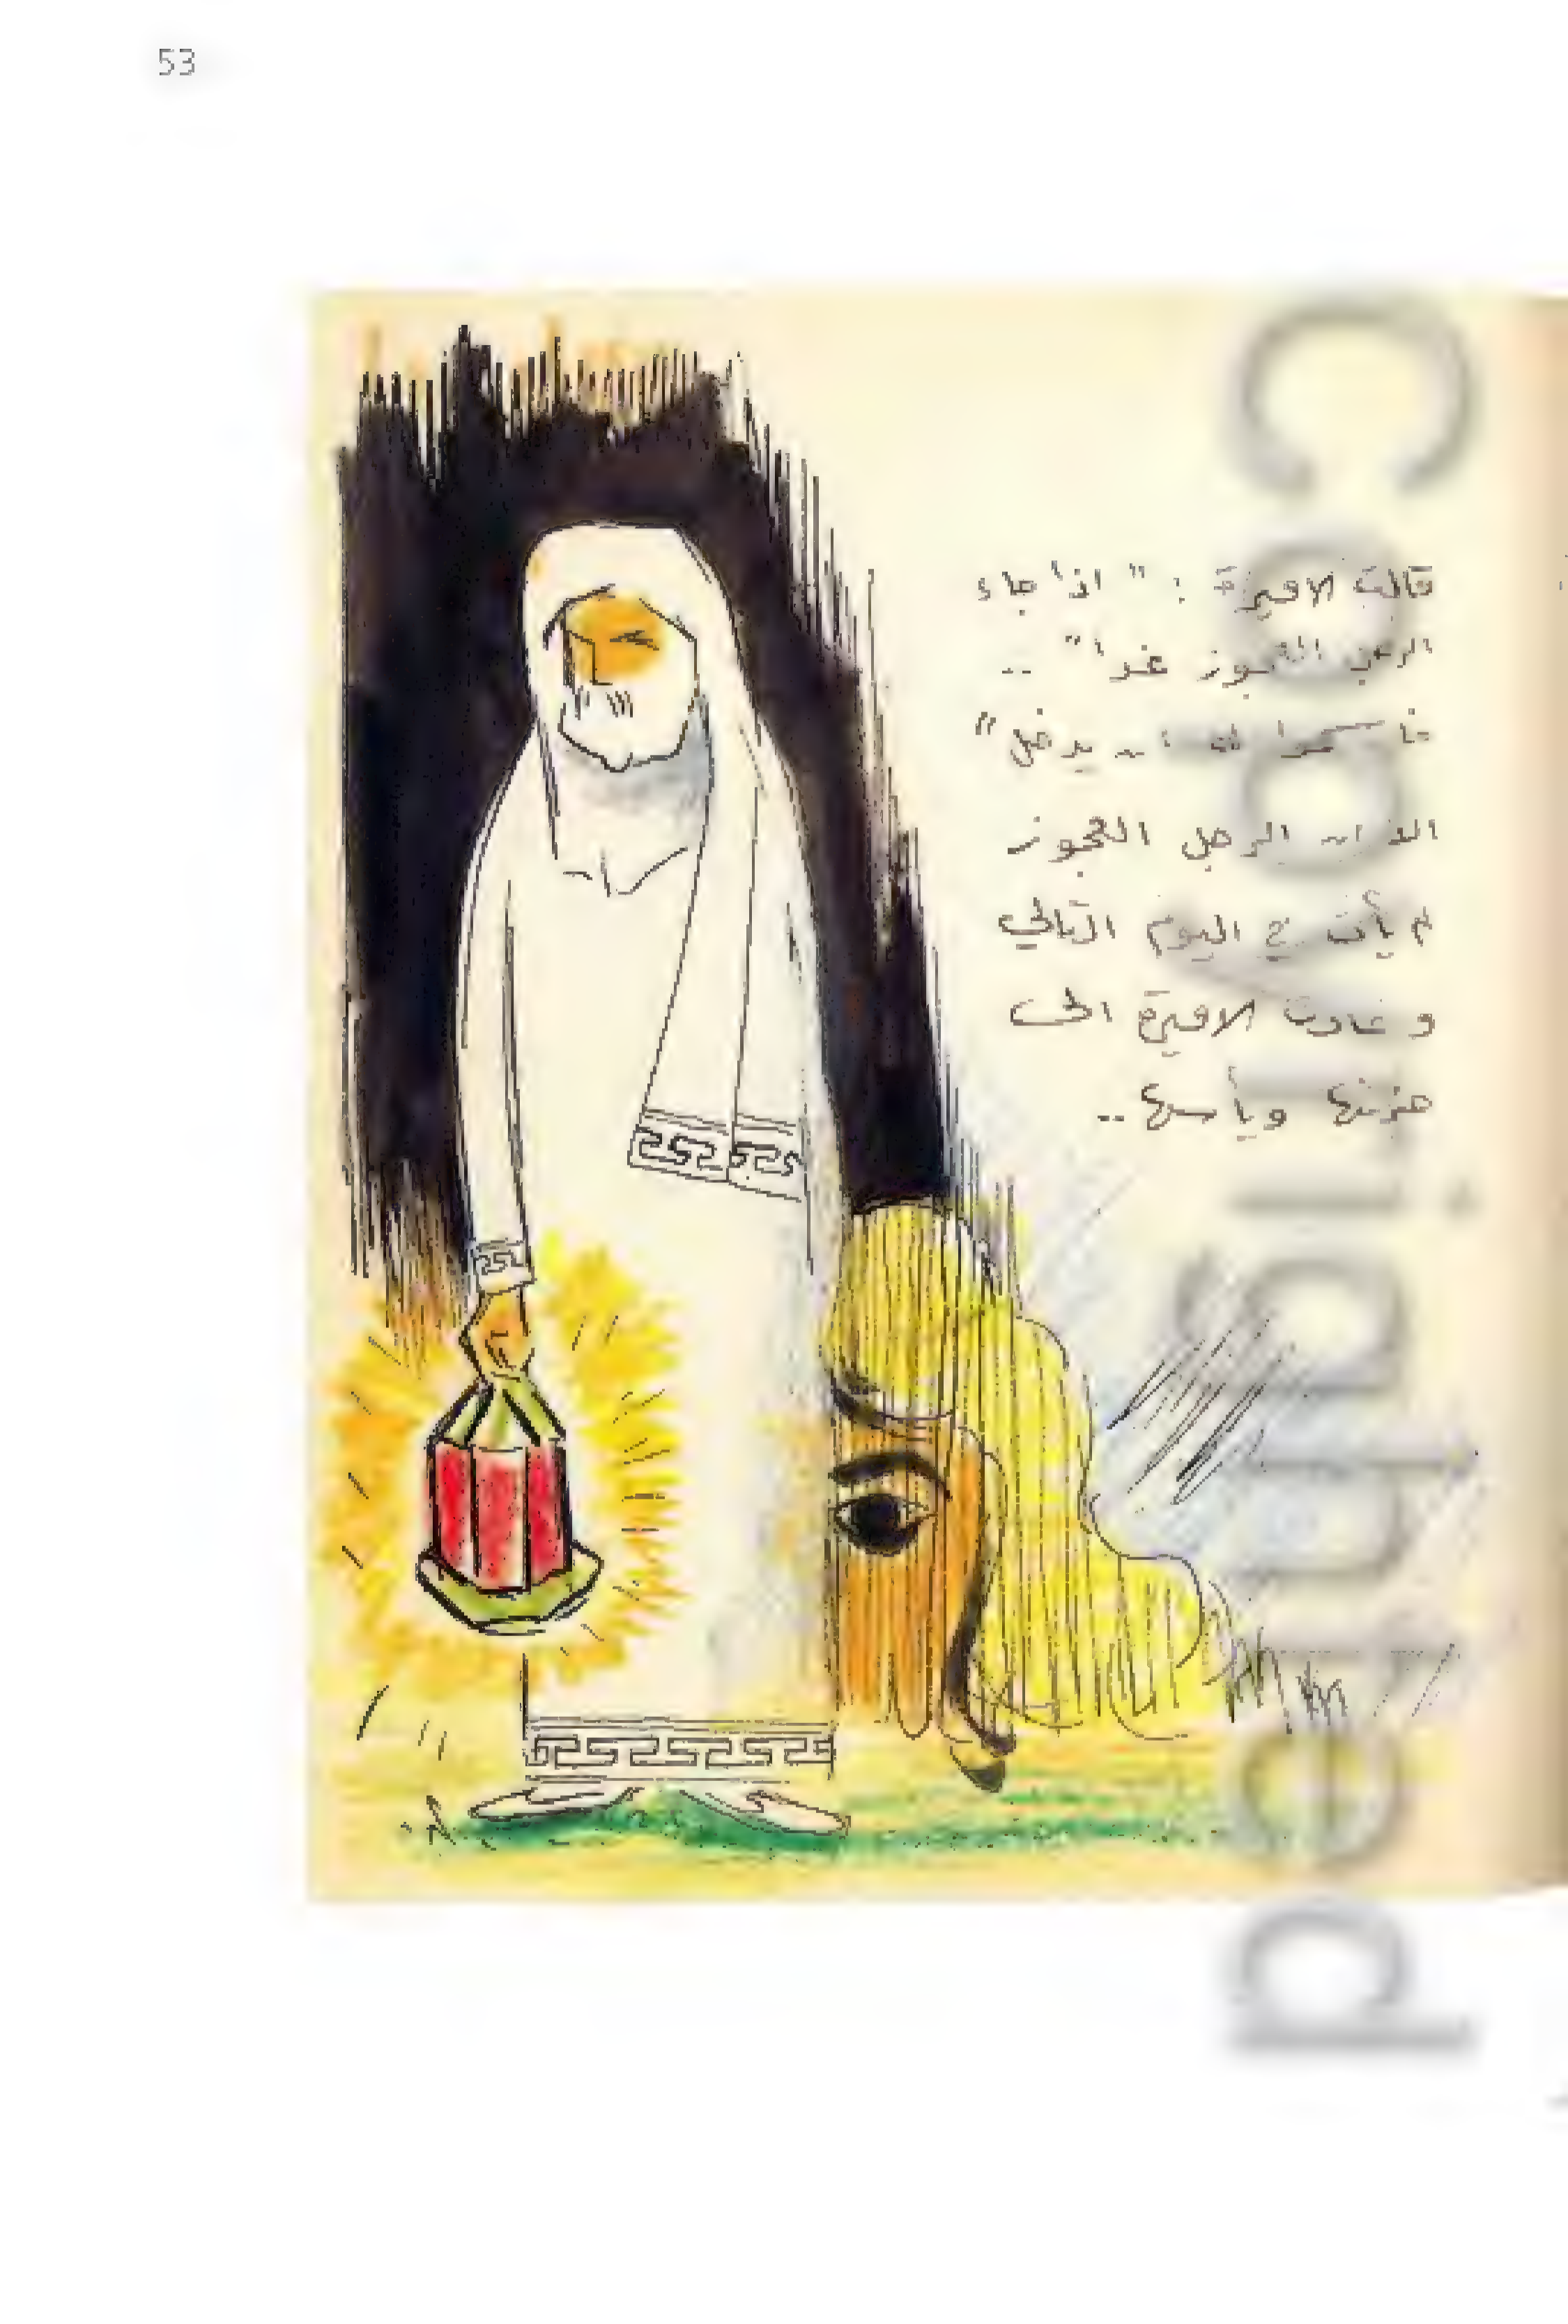 53
قالت الاميرة : " اذا جاء
الرجل العجوز غدا" ..
يدخل"
الرجل العجوز
لم يأت في اليوم التالي
و عادت الاميرة الى
حزنها ويأسها ..
Copyrighted